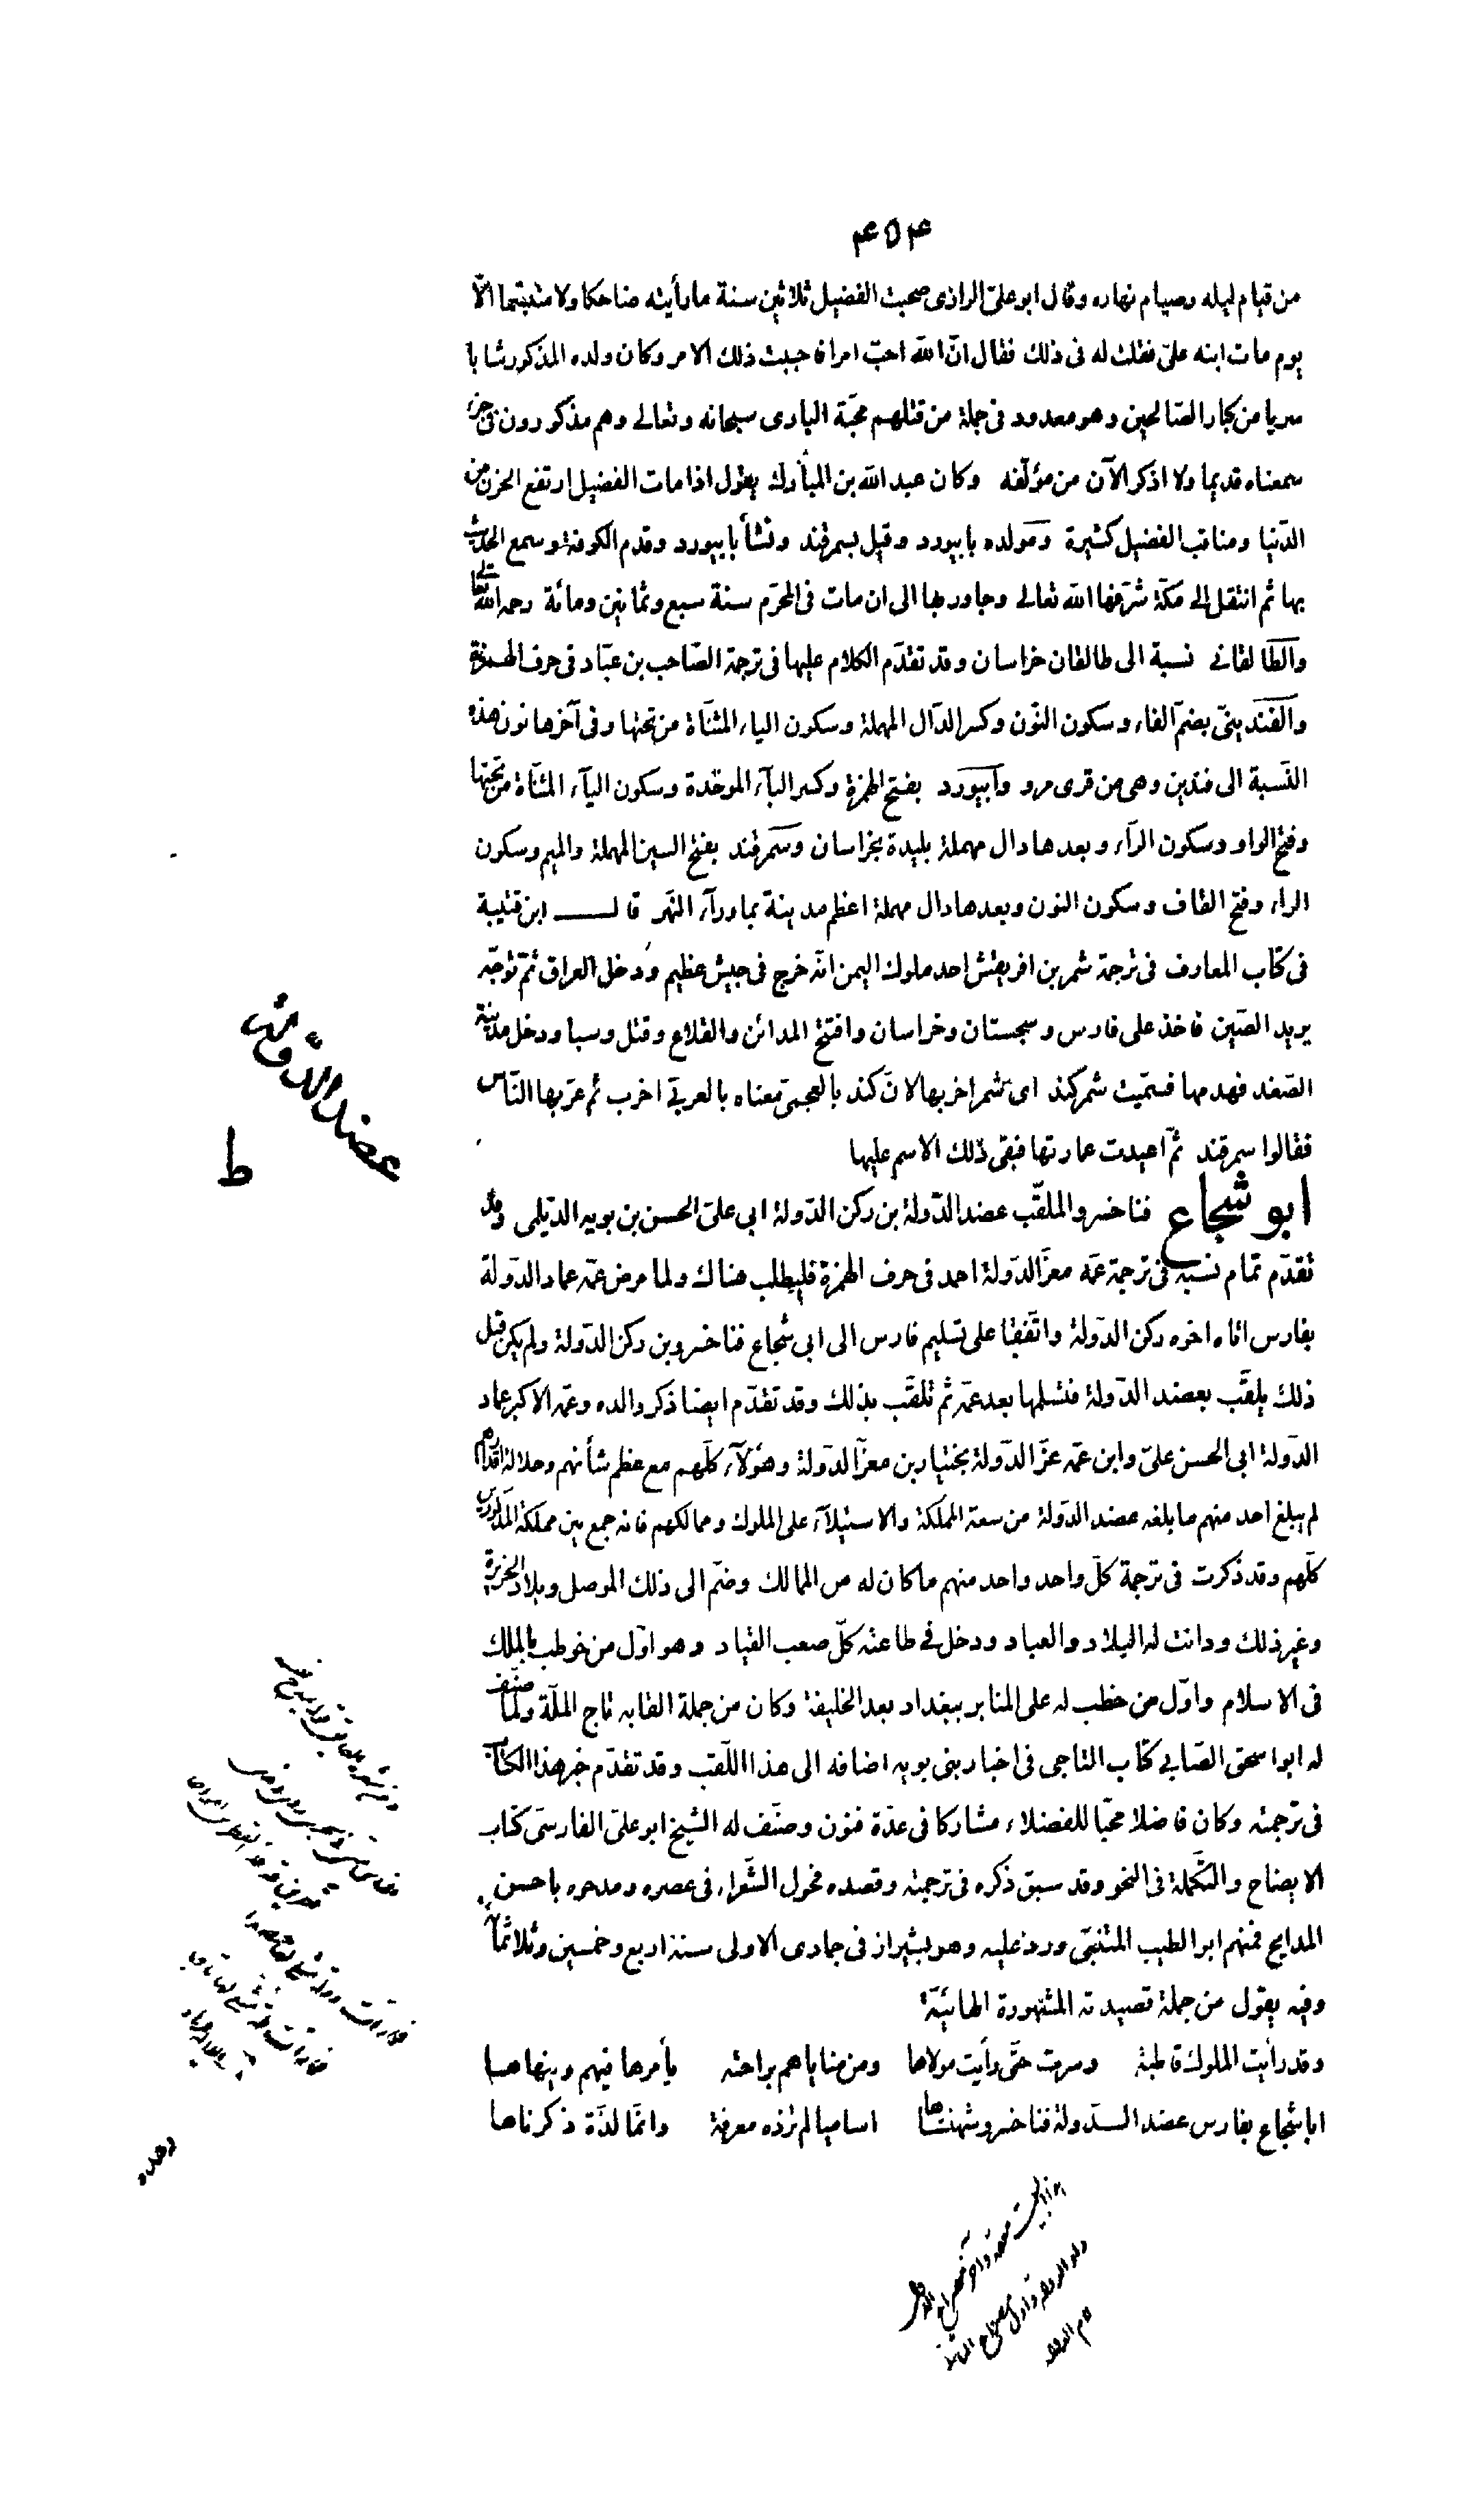 ۴۵۴
من قيام ليله وصيام نهاره وقال ابو علىّ الرازى صحبت الفضيل ثلاثين سنة ما رأيته ضاحكا ولا متبسّما الّا
يوم مات ابنه علىّ فقلت له فى ذلك فقال انّ الله احبّ امرا فاحببت ذلك الامر وكان ولده المذكور شابا
سريا من كبار الصّالحين وهو معدود فى جملة من قتلهم محبّة البارى سبحانه وتعالى وهم مذكورون فى جزء
سمعناه قديما ولا اذكر الآن من مؤلّفه وكان عبد الله بن المبارك يقول اذا مات الفضيل ارتفع الحزن من
الدّنيا ومناقب الفضيل كثيرة ومولده بابيورد وقيل بسمرقند ونشأ بابيورد وقدم الكوفة وسمع الحديث
بها ثم انتقل الى مكّة شرّفها الله تعالى وجاور بها الى ان مات فى المحرّم سنة سبع وثمانين ومائة رحمه الله تعالى
والطّالقانى نسبة الى طالقان خراسان وقد تقدّم الكلام عليها فى ترجمة الصّاحب بن عبّاد فى حرف الهمزة
والفندينىّ بضمّ الفاء وسكون النّون وكسر الدّال المهملة وسكون الياء المثنّاة من تحتها وفى آخرها نون هذه
النّسبة الى فندين وهى من قرى مرو وابيورد بفتح الهمزة وكسر البآء الموحّدة وسكون اليآء المثنّاة من تحتها
وفتح الواو وسكون الرّآء وبعدها دال مهملة بليدة بخراسان وسمرقند بفتح السين المهملة والميم وسكون
الراء وفتح القاف وسكون النون وبعدها دال مهملة اعظم مدينة بماورآء النّهر قال ابن قتيبة
فى كتاب المعارف فى ترجمة شمر بن افريقش احد ملوك اليمن انّه خرج فى جيش عظيم ودخل العراق ثمّ توجّه
يريد الصّين فاخذ على فارس وسجستان وخراسان وافتتح المدائن والقلاع وقتل وسبا ودخل مدينة
الصّغد فهدمها فسمّيت شمركند اى شمر اخربها لانّ كند بالعجمىّ معناه بالعربىّ اخرب ثم عرّبها النّاس
فقالوا سمرقند ثمّ اعيدت عمارتها فبقى ذلك الاسم عليها
عضد الدّولة
ط
ابو شجاع فناخسرو الملقّب عضد الدّولة بن ركن الدّولة ابى علىّ الحسن بن بويه الديلمى وقد
تقدّم تمام نسبه فى ترجمة عمّه معزّ الدّولة احمد فى حرف الهمزة فليطلب هناك ولما مرض عمّه عماد الدّولة
بفارس اتاه اخوه ركن الدّولة واتّفقا على تسليم فارس الى ابى شجاع فناخسرو بن ركن الدّولة ولم يكن قبل
ذلك يلقّب بعضد الدّولة فتسلمها بعد عمّه ثم تلقّب بذلك وقد تقدّم ايضا ذكر والده وعمّه الاكبر عماد
الدّولة ابى الحسن علىّ وابن عمّه عزّ الدّولة بختيار بن معزّ الدّولة وهؤلآء كلّهم مع عظم شأنهم وجلالة اقدارهم
لم يبلغ احد منهم ما بلغه عضد الدّولة من سعة المملكة والاستيلآء على الملوك وممالكهم فانه جمع بين مملكة المذكورين
كلّهم وقد ذكرت فى ترجمة كلّ واحد واحد منهم ما كان له من الممالك وضمّ الى ذلك الموصل وبلاد الجزيرة
وغير ذلك ودانت له البلاد والعباد ودخل فى طاعته كلّ صعب القياد وهو اوّل من خوطب بالملك
فى الاسلام واوّل من خطب له على المنابر ببغداد بعد الخليفة وكان من جملة القابه تاج الملّة ولمّا صنّف
له ابو اسحق الصّابى كتاب التاجى فى اخبار بنى بويه اضافه الى هذا اللّقب وقد تقدّم خبر هذا الكتاب
فى ترجمته وكان فاضلا محبّا للفضلاء مشاركا فى عدّة فنون وصنّف له الشيخ ابو علىّ الفارسىّ كتاب
الايضاح والتّكملة فى النحو وقد سبق ذكره فى ترجمته وقصده فحول الشّعراء فى عصره ومدحوه باحسن
المدايح فمنهم ابو الطيب المتنبّى ورد عليه وهو بشيراز فى جمادى الاولى سنة اربع وخمسين وثلاثمائة
وفيه يقول من جملة قصيدته المشهورة الهائيّة
وقد رأيت الملوك قاطبة وسرت حتّى رأيت مولاها ومن مناياهم براحته يأمرها فيهم وينهاها
ابا شجاع بفارس عضد الدّولة فناخسرو شهنشاها اساميا لم تزده معرفة وانّما لذّة ذكرناها